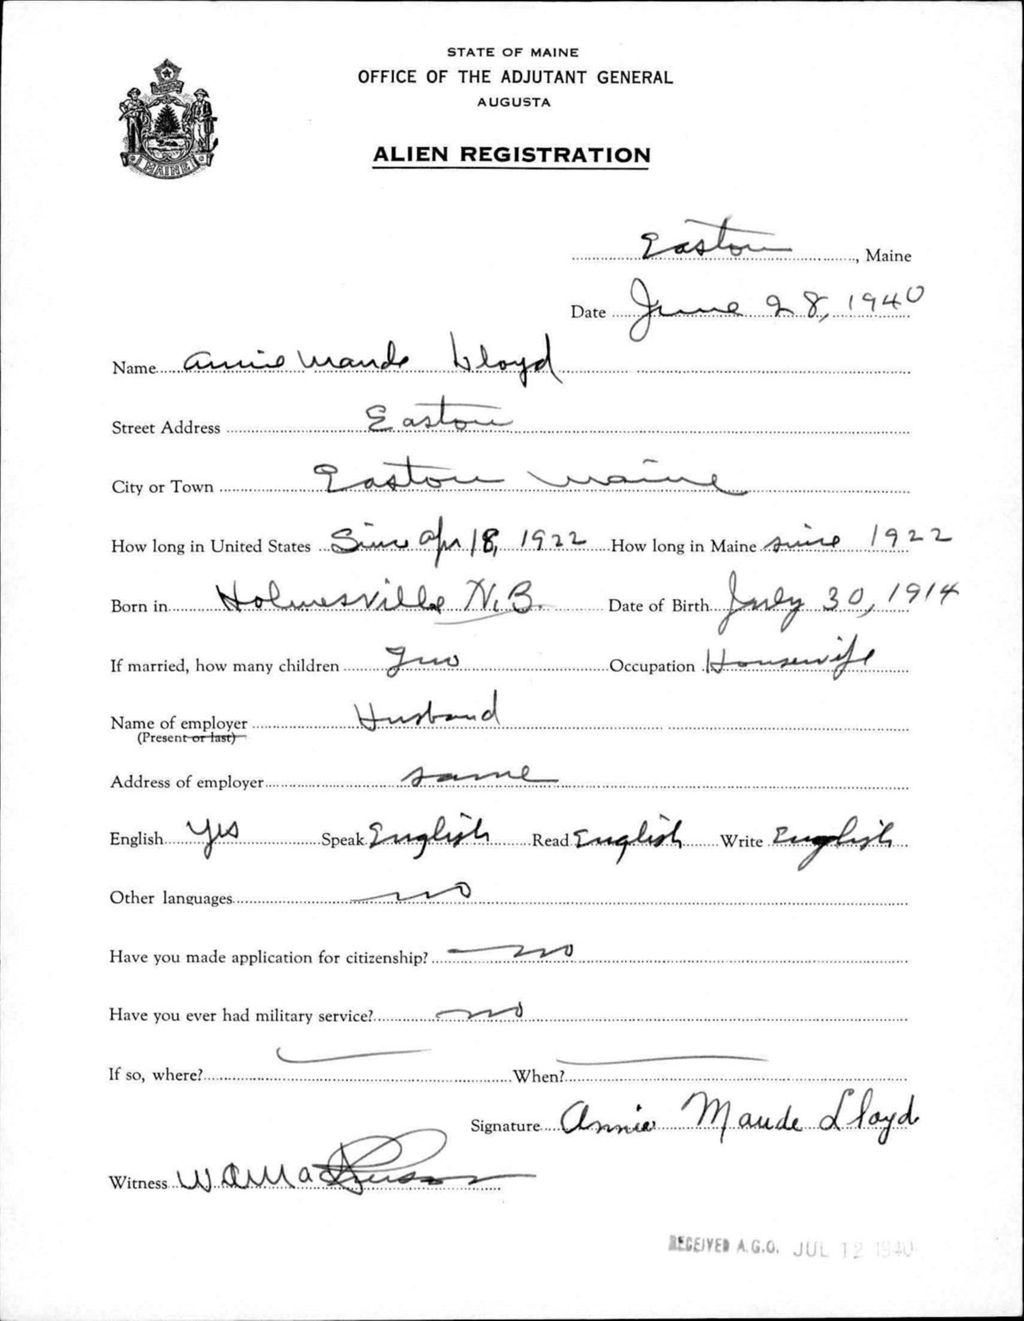 STATE OF MAINE
OFFICE OF THE ADJUTANT GENERAL
AUGUSTA
ALIEN REGISTRATION
MAINE
Easton, Maine
Date June 28, 1940
Name Annie Maude Lloyd
Street Address Easton
City or Town Easton Maine
How long in United States Since Apr 18, 1922 How long in Maine since 1922
Born in Holmesville N.B. Date of Birth July 30, 1914
If married, how many children Two Occupation Housewife
Name of employer Husband
(Present or last)
Address of employer same
English Yes Speak English Read English Write English
Other languages no
Have you made application for citizenship? no
Have you ever had military service? no
If so, where? When?
Signature Annie Maude Lloyd
Witness
RECEIVED A.G.O. JUL 12 1940